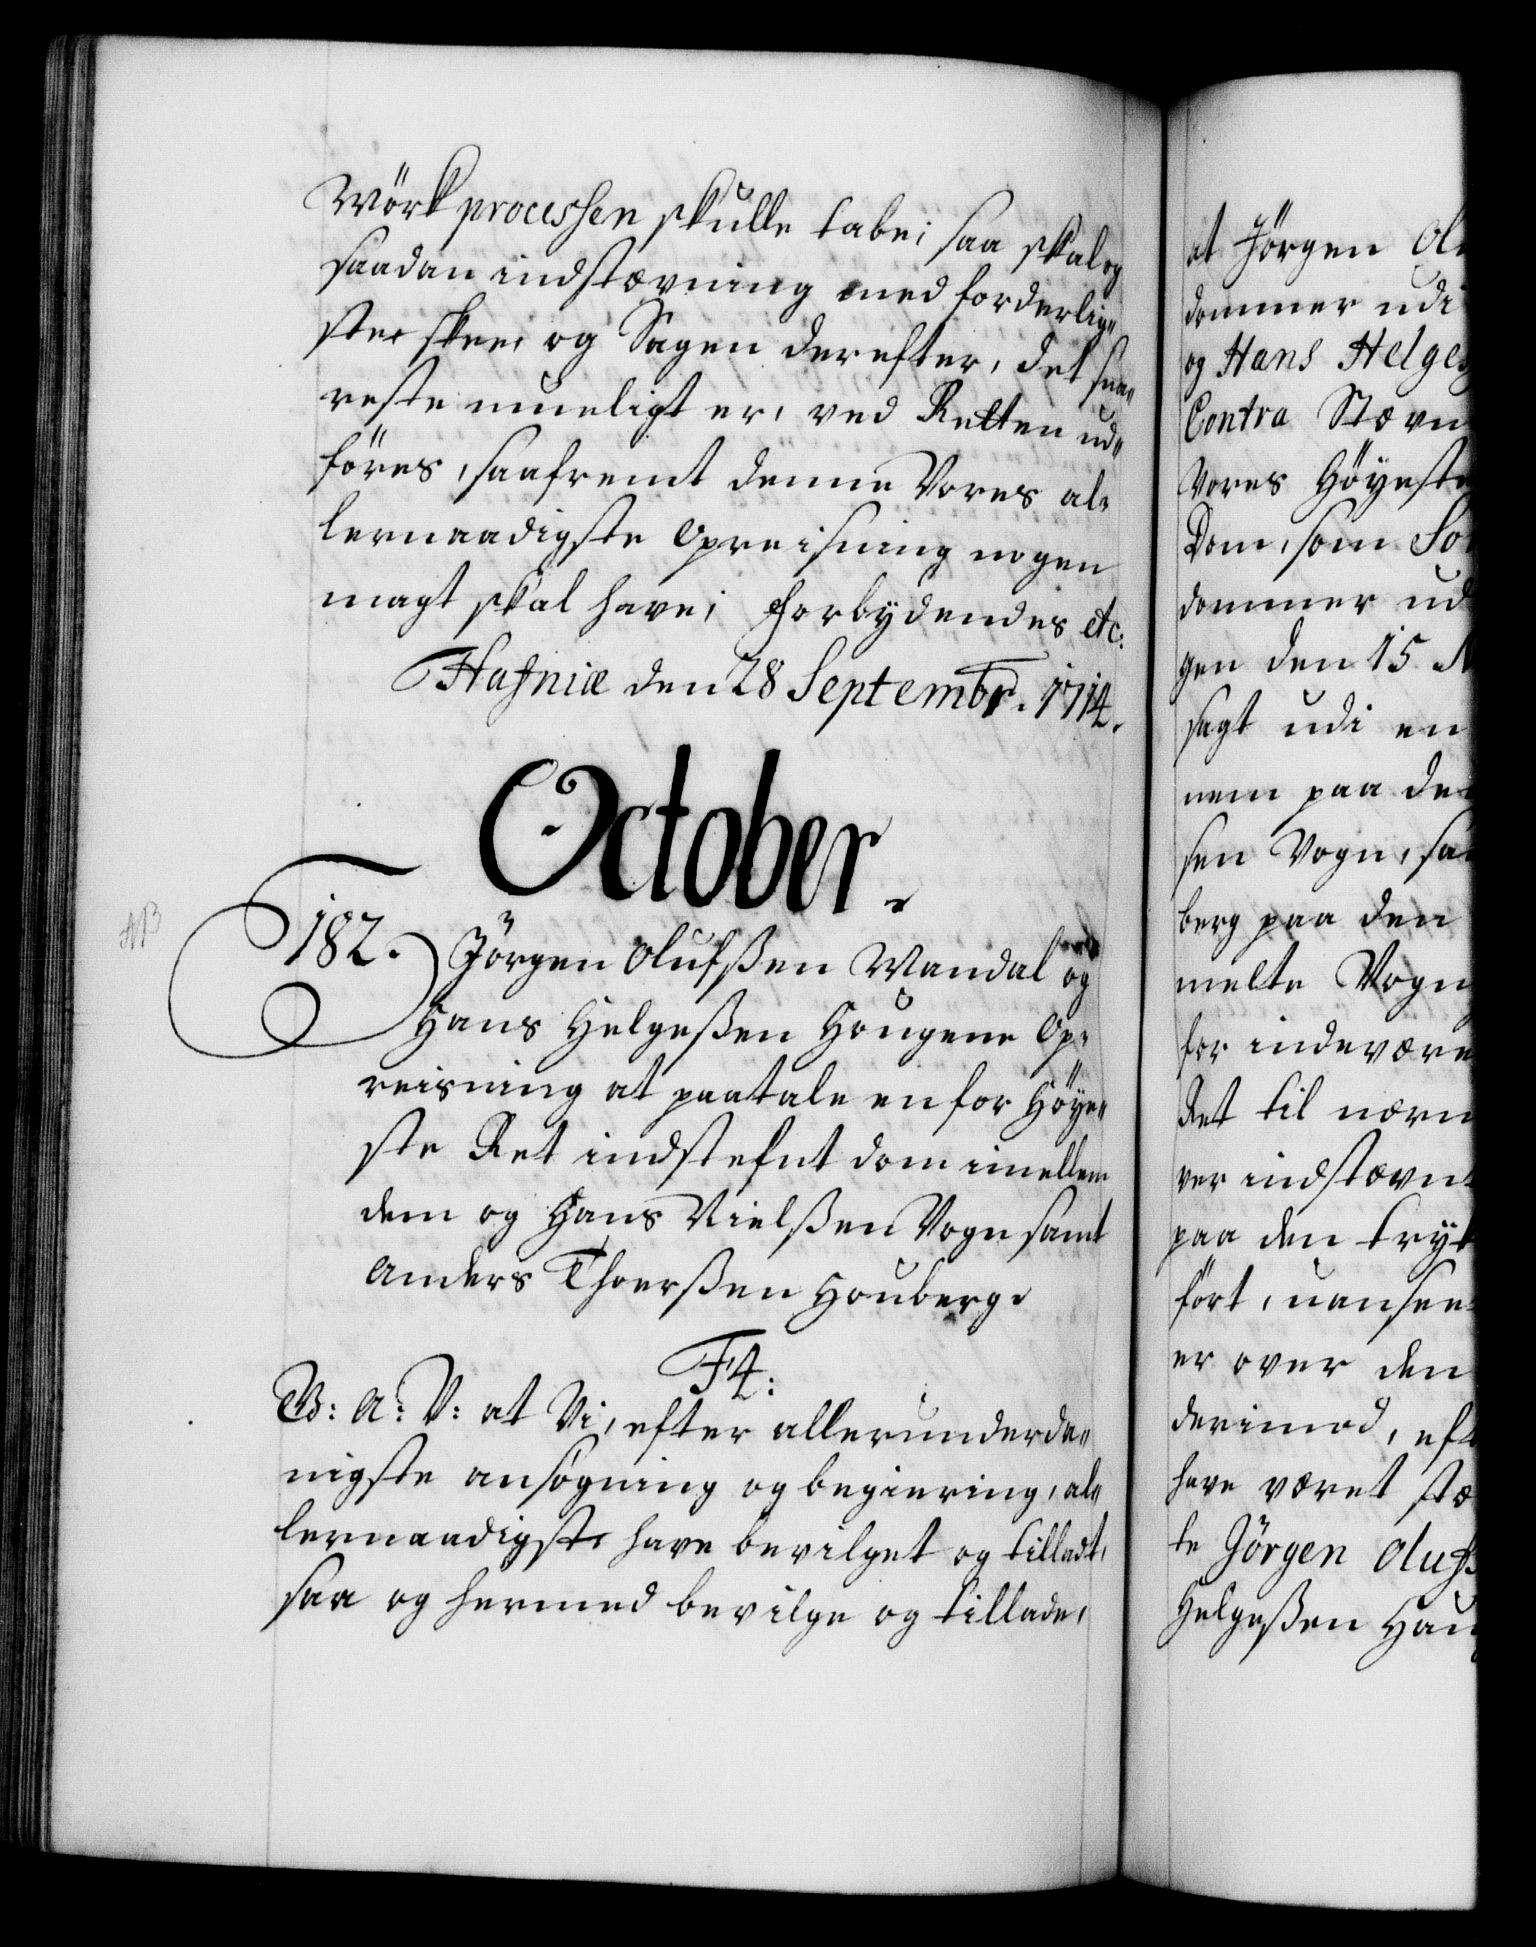 Wörk processen skulle tabe; saa skal og
saadan indstævning med forderlig„
ste skee, og Sagen derefter, det sna„
reste mueligt er, ved Retten ud„
föres, saafremt denne Vores al„
lernaadigste Opreisning nogen
magt skal have; Forbydendes etc:
Hafniæ den 28 Septembr. 1714.
October.
182. Jörgen Olufßen Wandal og
Hans Helgeßen Hougene Op„
reisning at paatale en for Höye„
ste Ret indstefnt dom imellem
dem og Hans Nielßen Vogn samt
Anders Thoerßen Houberg.
F4:
G: A: V: at Vi, efter allerunderda„
nigste ansøgning og begiering, al„
lernaadigst have bevilget og tilladt,
saa og hermed bevilge og tillade,
at Jörgen Ol
dommer udi
og Hans Helges
Contra Stævn
Vores Höyeste
Dom, som So
dommer ud
gen den 15 N
sagt udi en
nem paa de
sen Vogn, sa
berg paa den
melte Vogn
for indevære
Ret til nærv
ver indstævn
paa den tryk
fört, uansee
er over den
derimod, eft
have været stæ
te Jörgen Oluf
Helgeßen Hau